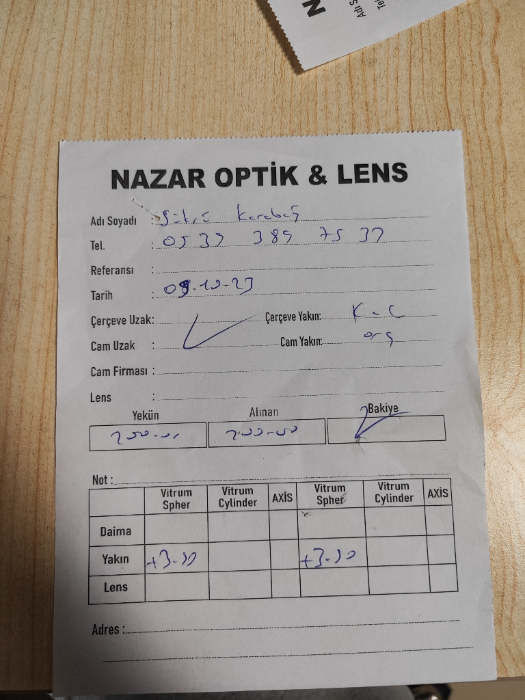 N
Adı S
Tel
NAZAR OPTİK & LENS
Adı Soyadı : Karabağ
Tel. : 0537 389 75 37
Referansı :
Tarih : 09.10-23
Çerçeve Uzak: Çerçeve Yakın: K-C
Cam Uzak : Cam Yakın: org
Cam Firması :
Lens :
Yekün Alınan Bakiye
200-00 200-00
Not :
Vitrum Spher Vitrum Cylinder AXİS Vitrum Spher Vitrum Cylinder AXİS
Daima
Yakın +3-50 +3-50
Lens
Adres :